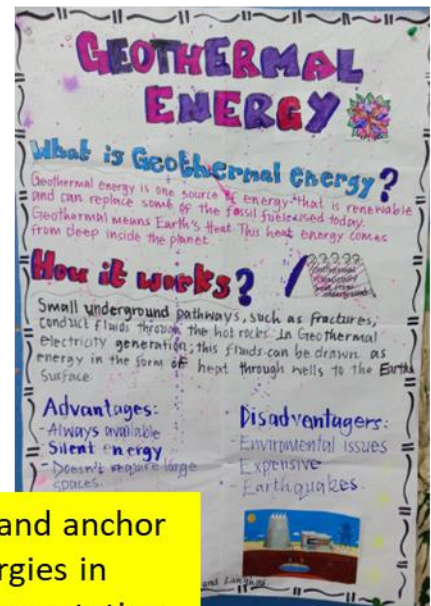 GEOTHERMAL
ENERGY
What is Geothermal energy?
Geothermal energy is one source of energy that is renewable
and can replace some of the fossil fuels used today.
Geothermal means Earth's Heat This heat energy comes
from deep inside the planet.
How it works?
Small underground pathways, such as fractures,
conduct fluids through the hot rocks In Geothermal
electricity generation; this fluids can be drawn as
energy in the form of heat through wells to the Earths
Surface
Advantages:
- Always available
- Silent energy
- Doesn't require large
spaces.
Disadvantagers:
- Envirpmental issues
- Expensive
- Earthquakes.
and anchor
rgies in
and Langua